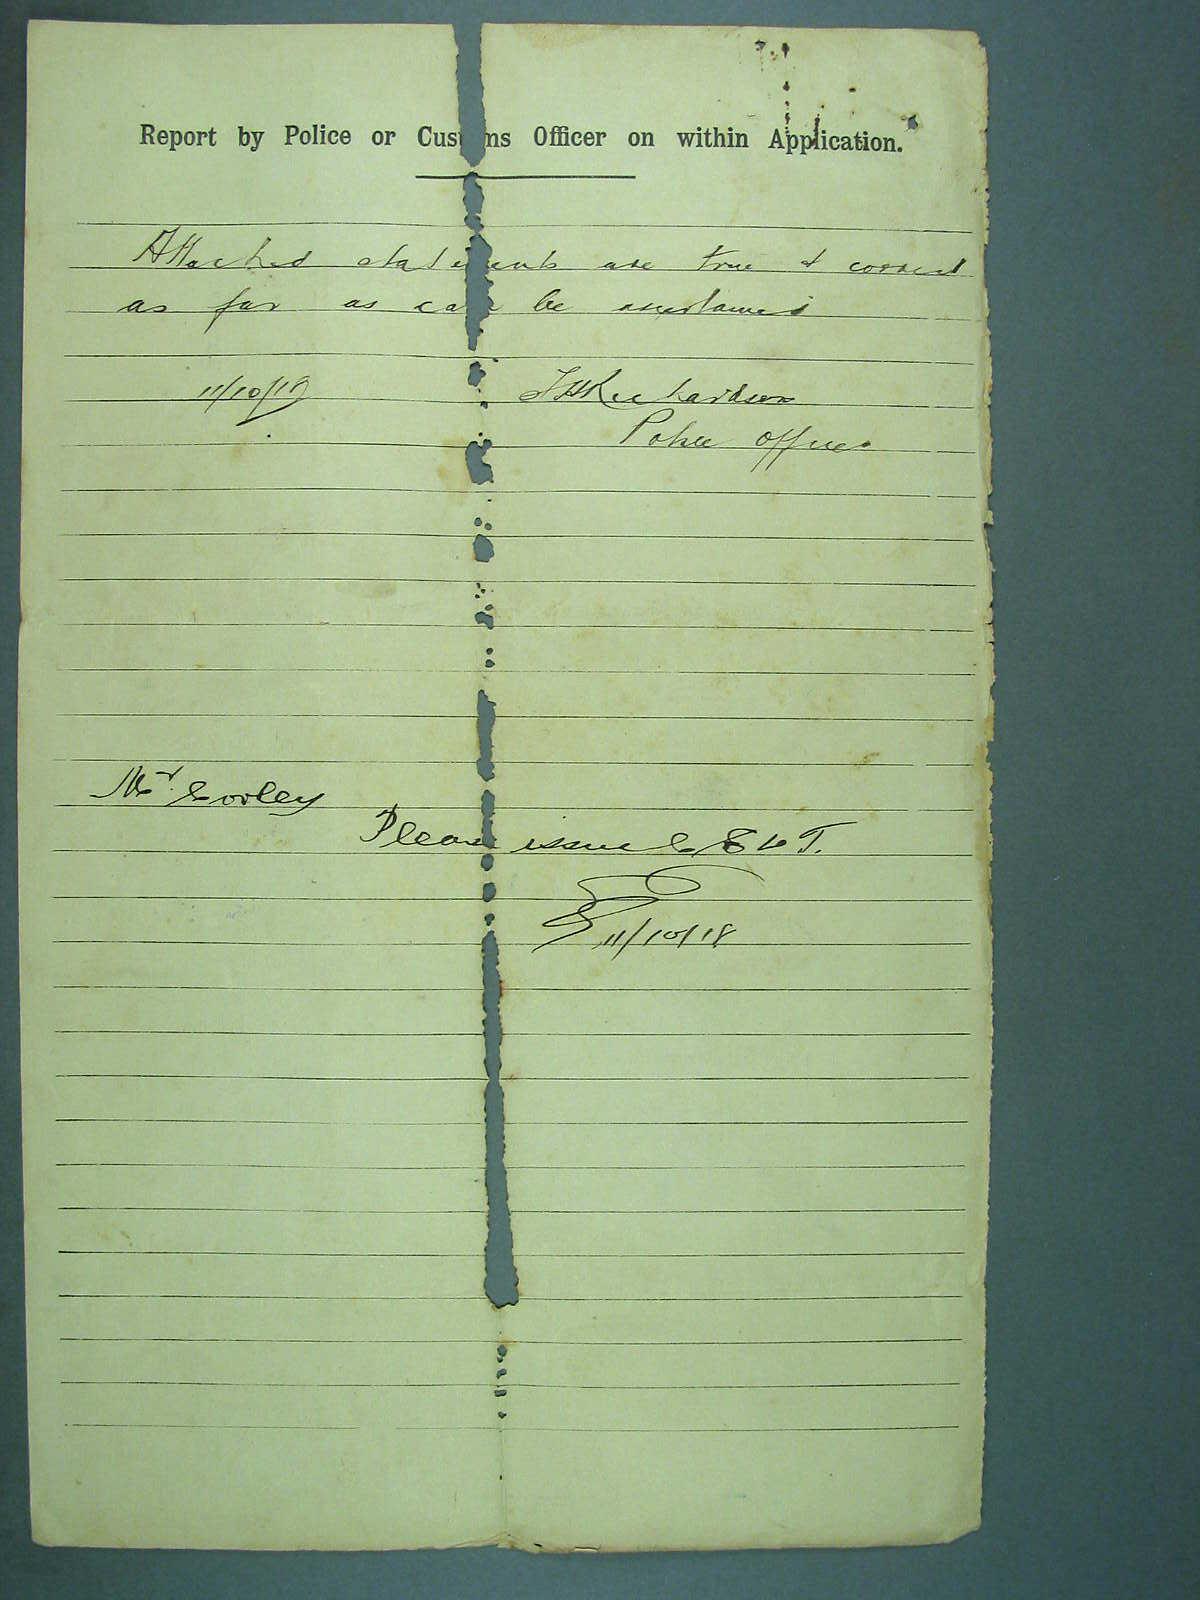 Report by Police or Customs Officer on within Application.
Attached statements are true & correct
as far as can be ascertained
11/10/18
Richardson
Police officer
Mr Corley
Please issue C E D T.
11/10/18